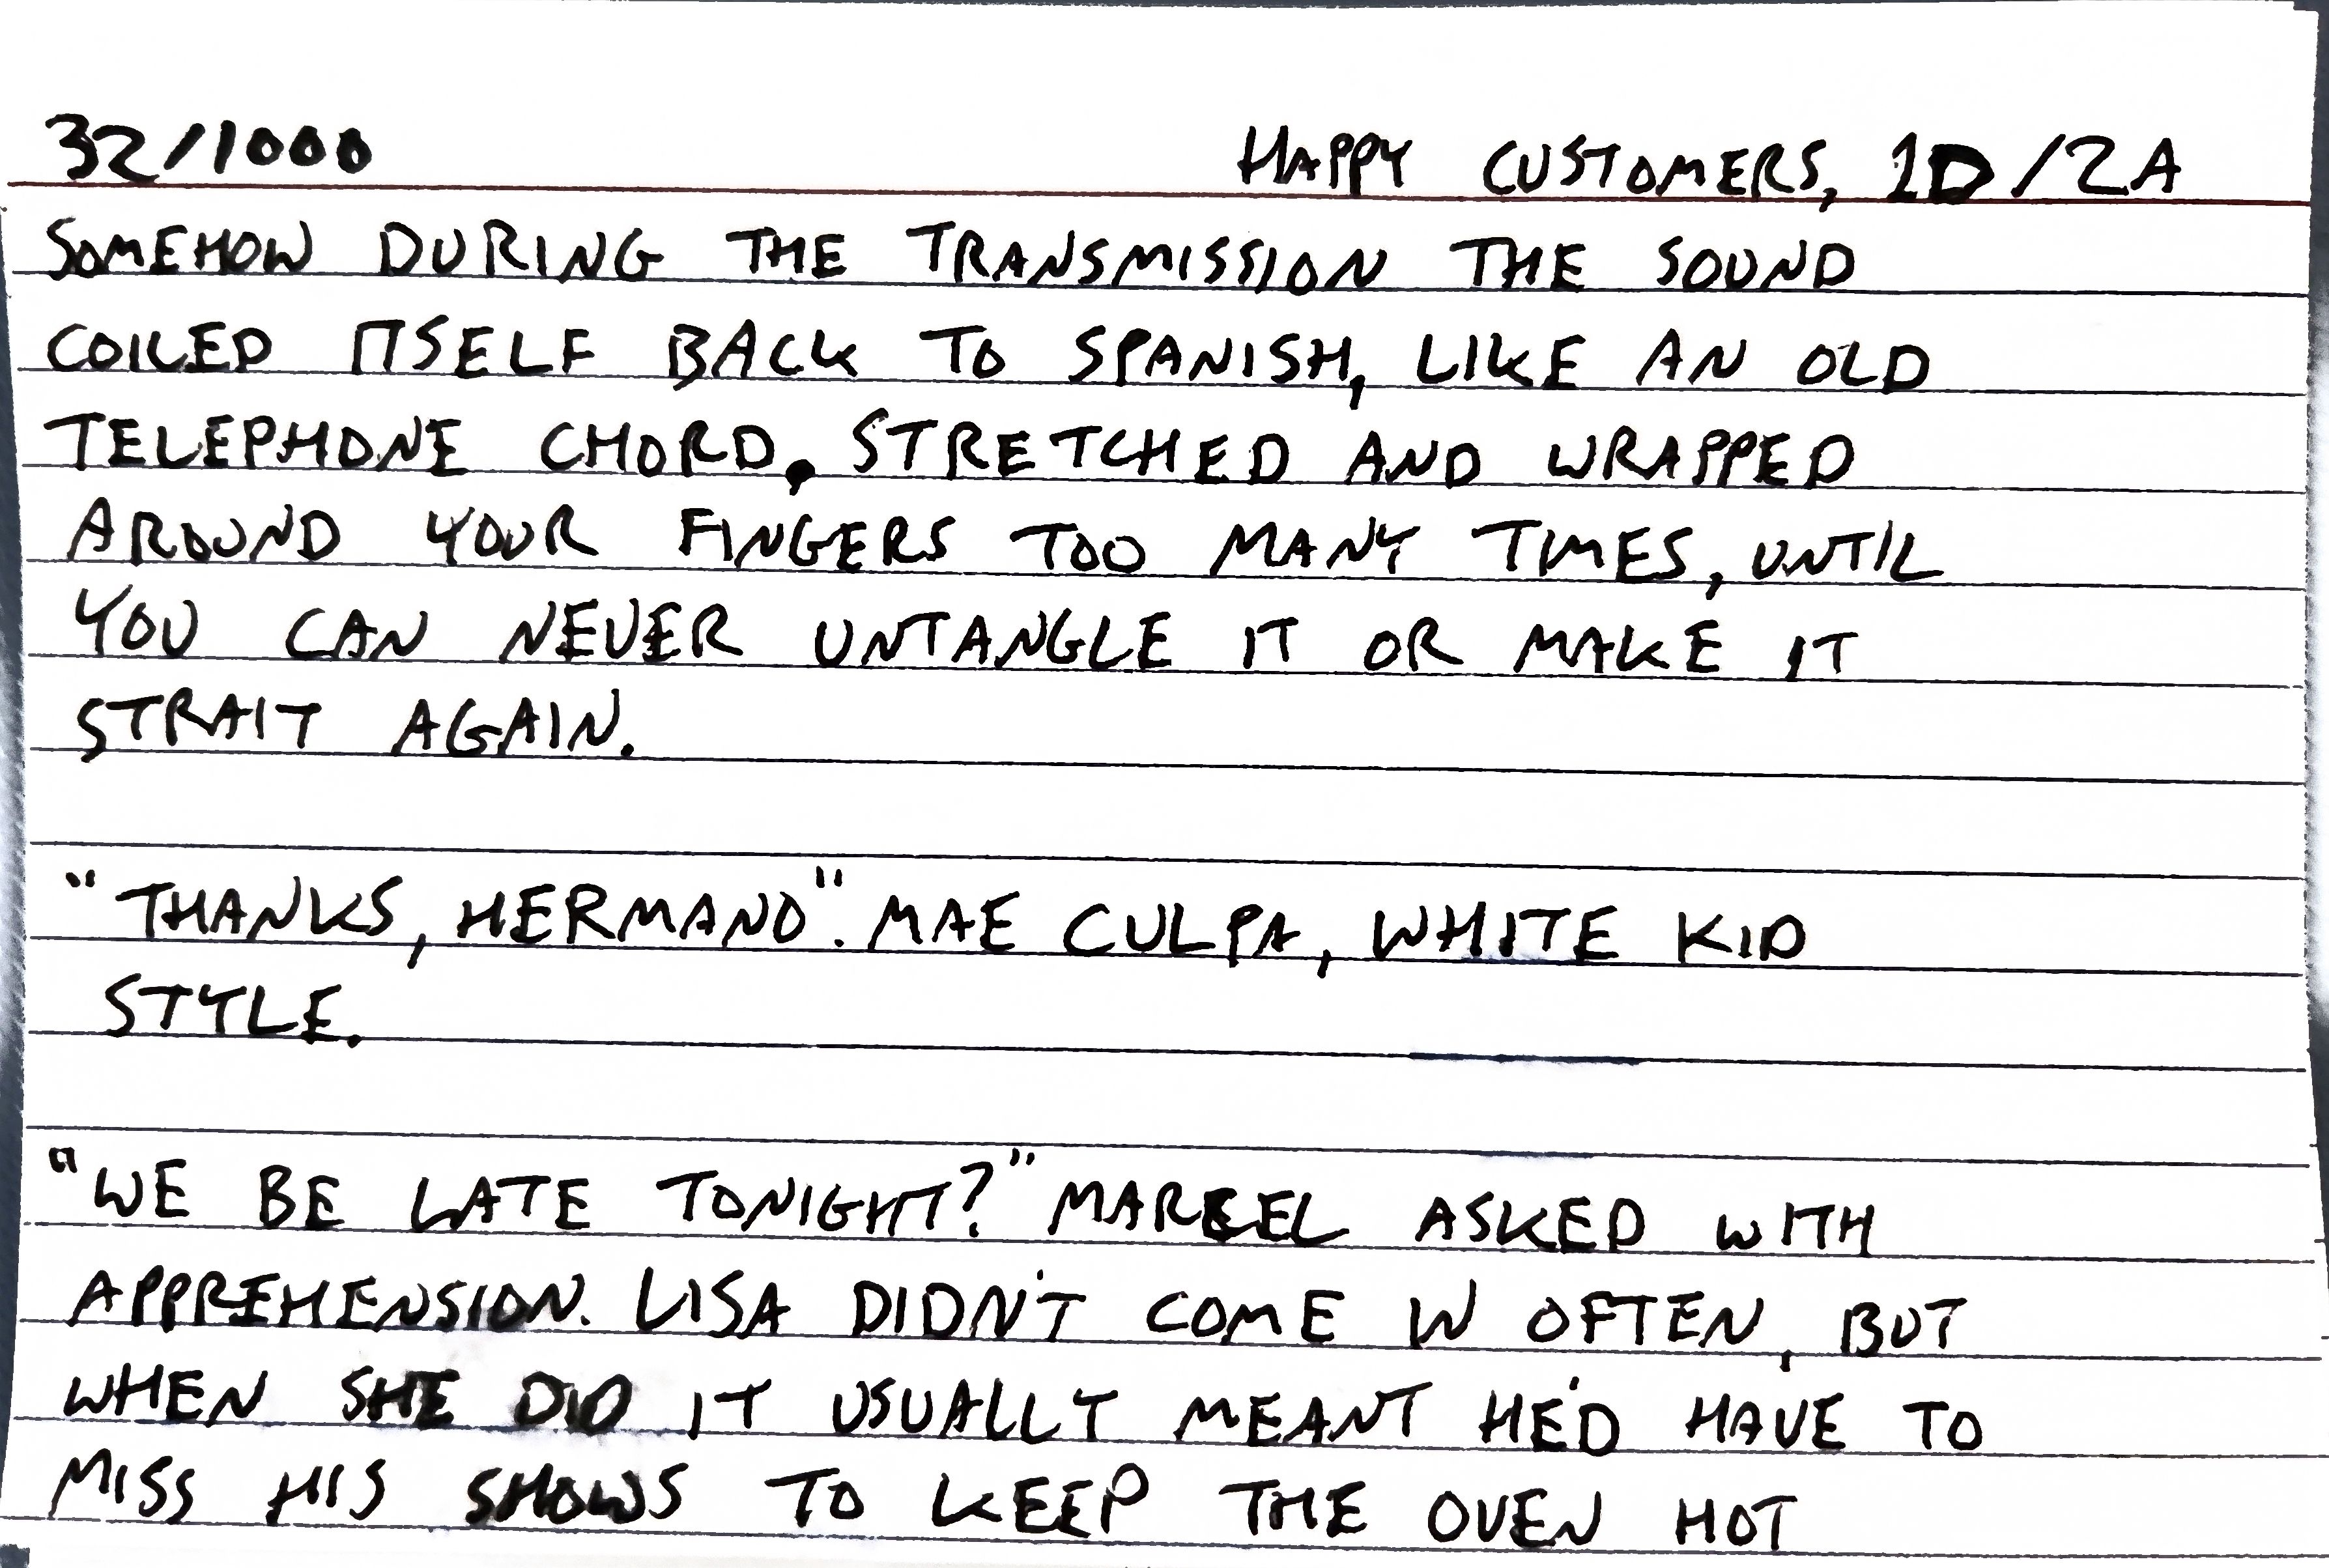 32/1000 HAPPY CUSTOMERS, 1D/2A
SOMEHOW DURING THE TRANSMISSION THE SOUND
COILED ITSELF BACK TO SPANISH, LIKE AN OLD
TELEPHONE CHORD, STRETCHED AND WRAPPED
AROUND YOUR FINGERS TOO MANY TIMES, UNTIL
YOU CAN NEVER UNTANGLE IT OR MAKE IT
STRAIT AGAIN.
"THANKS, HERMANO". MAE CULPA, WHITE KID
STYLE.
"WE BE LATE TONIGHT?" MARCEL ASKED WITH
APPREHENSION. LISA DIDN'T COME IN OFTEN, BUT
WHEN SHE DID IT USUALLY MEANT HE'D HAVE TO
MISS HIS SHOWS TO KEEP THE OVEN HOT